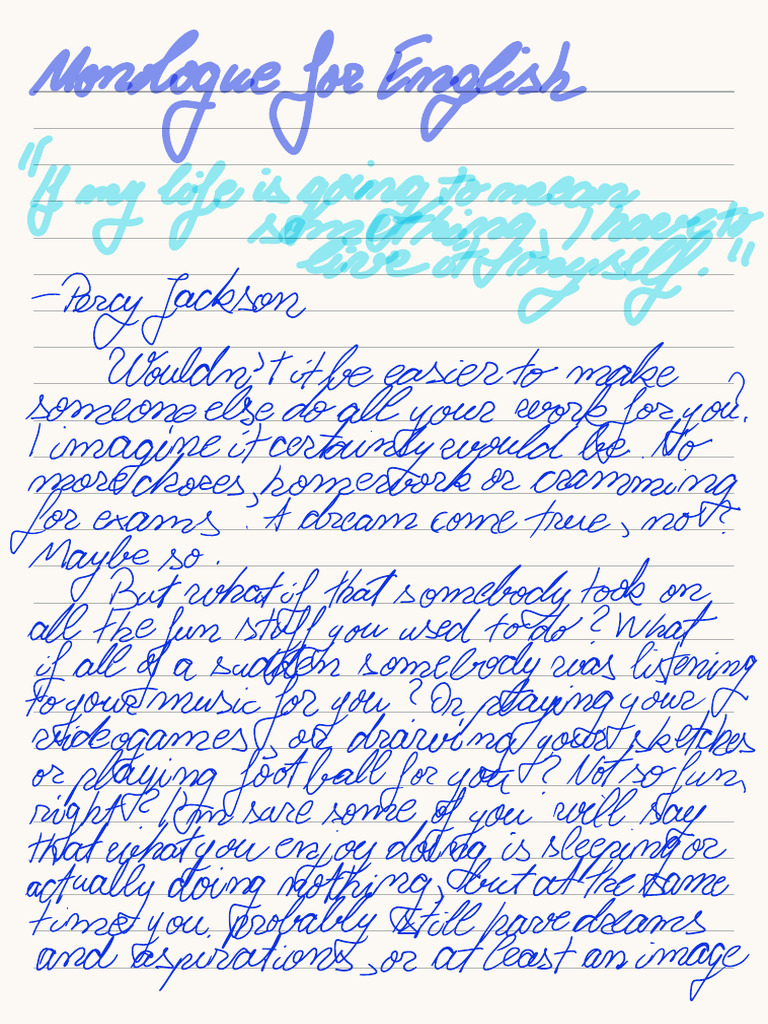 Monologue for English
"If my life is going to mean
something, I have to
live it myself."
—Percy Jackson
Wouldn't it be easier to make
someone else do all your work for you?
I imagine it certainly would be. No
more chores, homework or cramming
for exams. A dream come true, no?
Maybe so.
But what if that somebody took on
all the fun stuff you used to do? What
if all of a sudden somebody was listening
to your music for you? Or playing your
videogames, or drawing your sketches
or playing football for you? Not so fun,
right? I'm sure some of you will say
that what you enjoy doing is sleeping or
actually doing nothing, but at the same
time you probably still have dreams
and aspirations, or at least an image